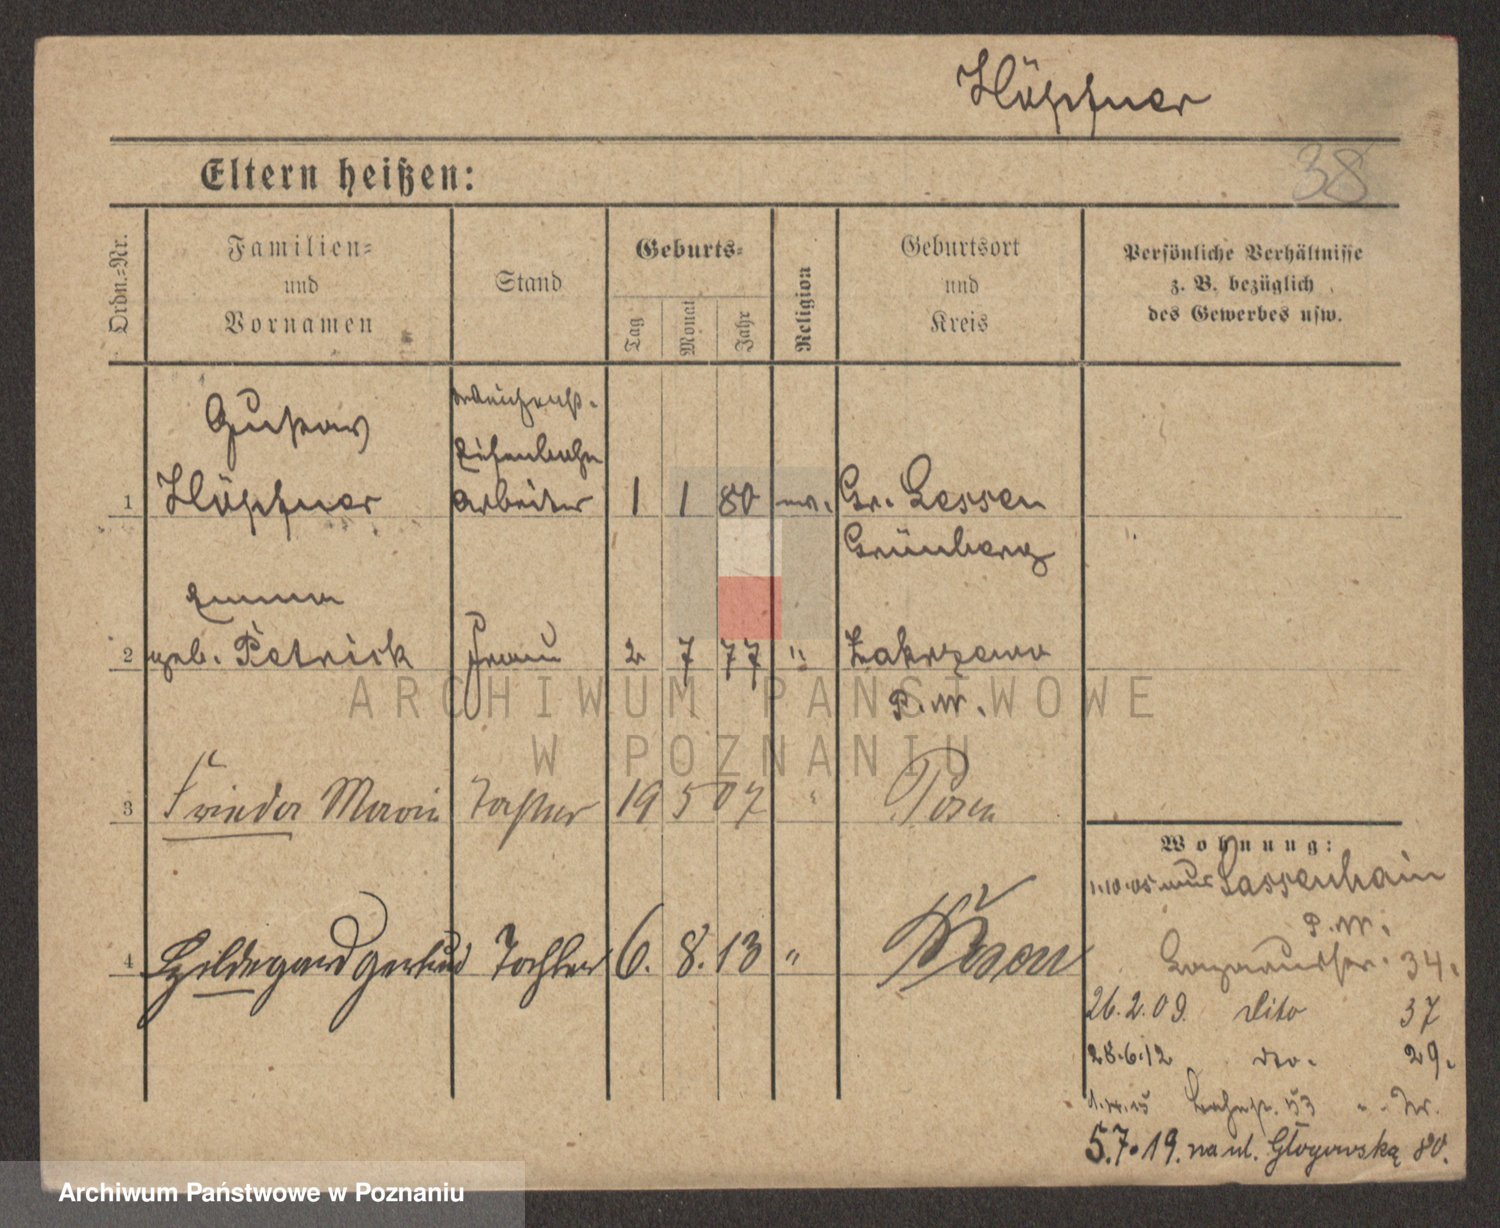 Höpfner
38
Eltern heißen:
Ordn.-Nr.
Familien-
und
Vornamen
Stand
Geburts-
Tag
Monat
Jahr
Religion
Geburtsort
und
Kreis
Persönliche Verhältnisse
z. B. bezüglich
des Gewerbes usw.
Gustav
Eisenbahn
1 Höpfner arbeiter 1 1 80 ev. Gr. Lessen
Grünberg
Emma
2 geb. Petrick Frau 2 7 77 " Zakrzewo
P. W.
ARCHIWUM PAŃSTWOWE
W POZNANIU
3 Frieda Marie Tochter 19 5 07 " Posen
Wohnung:
1.10.05 aus Sassenhain
P. W.
4 Hildegard Gertrud Tochter 6. 8. 13 " Posen
Lazarusstr. 34.
26.2.09. dito 37
28.6.12 dto. 29.
5.7.19. na ul. Głogowską 80.
Archiwum Państwowe w Poznaniu